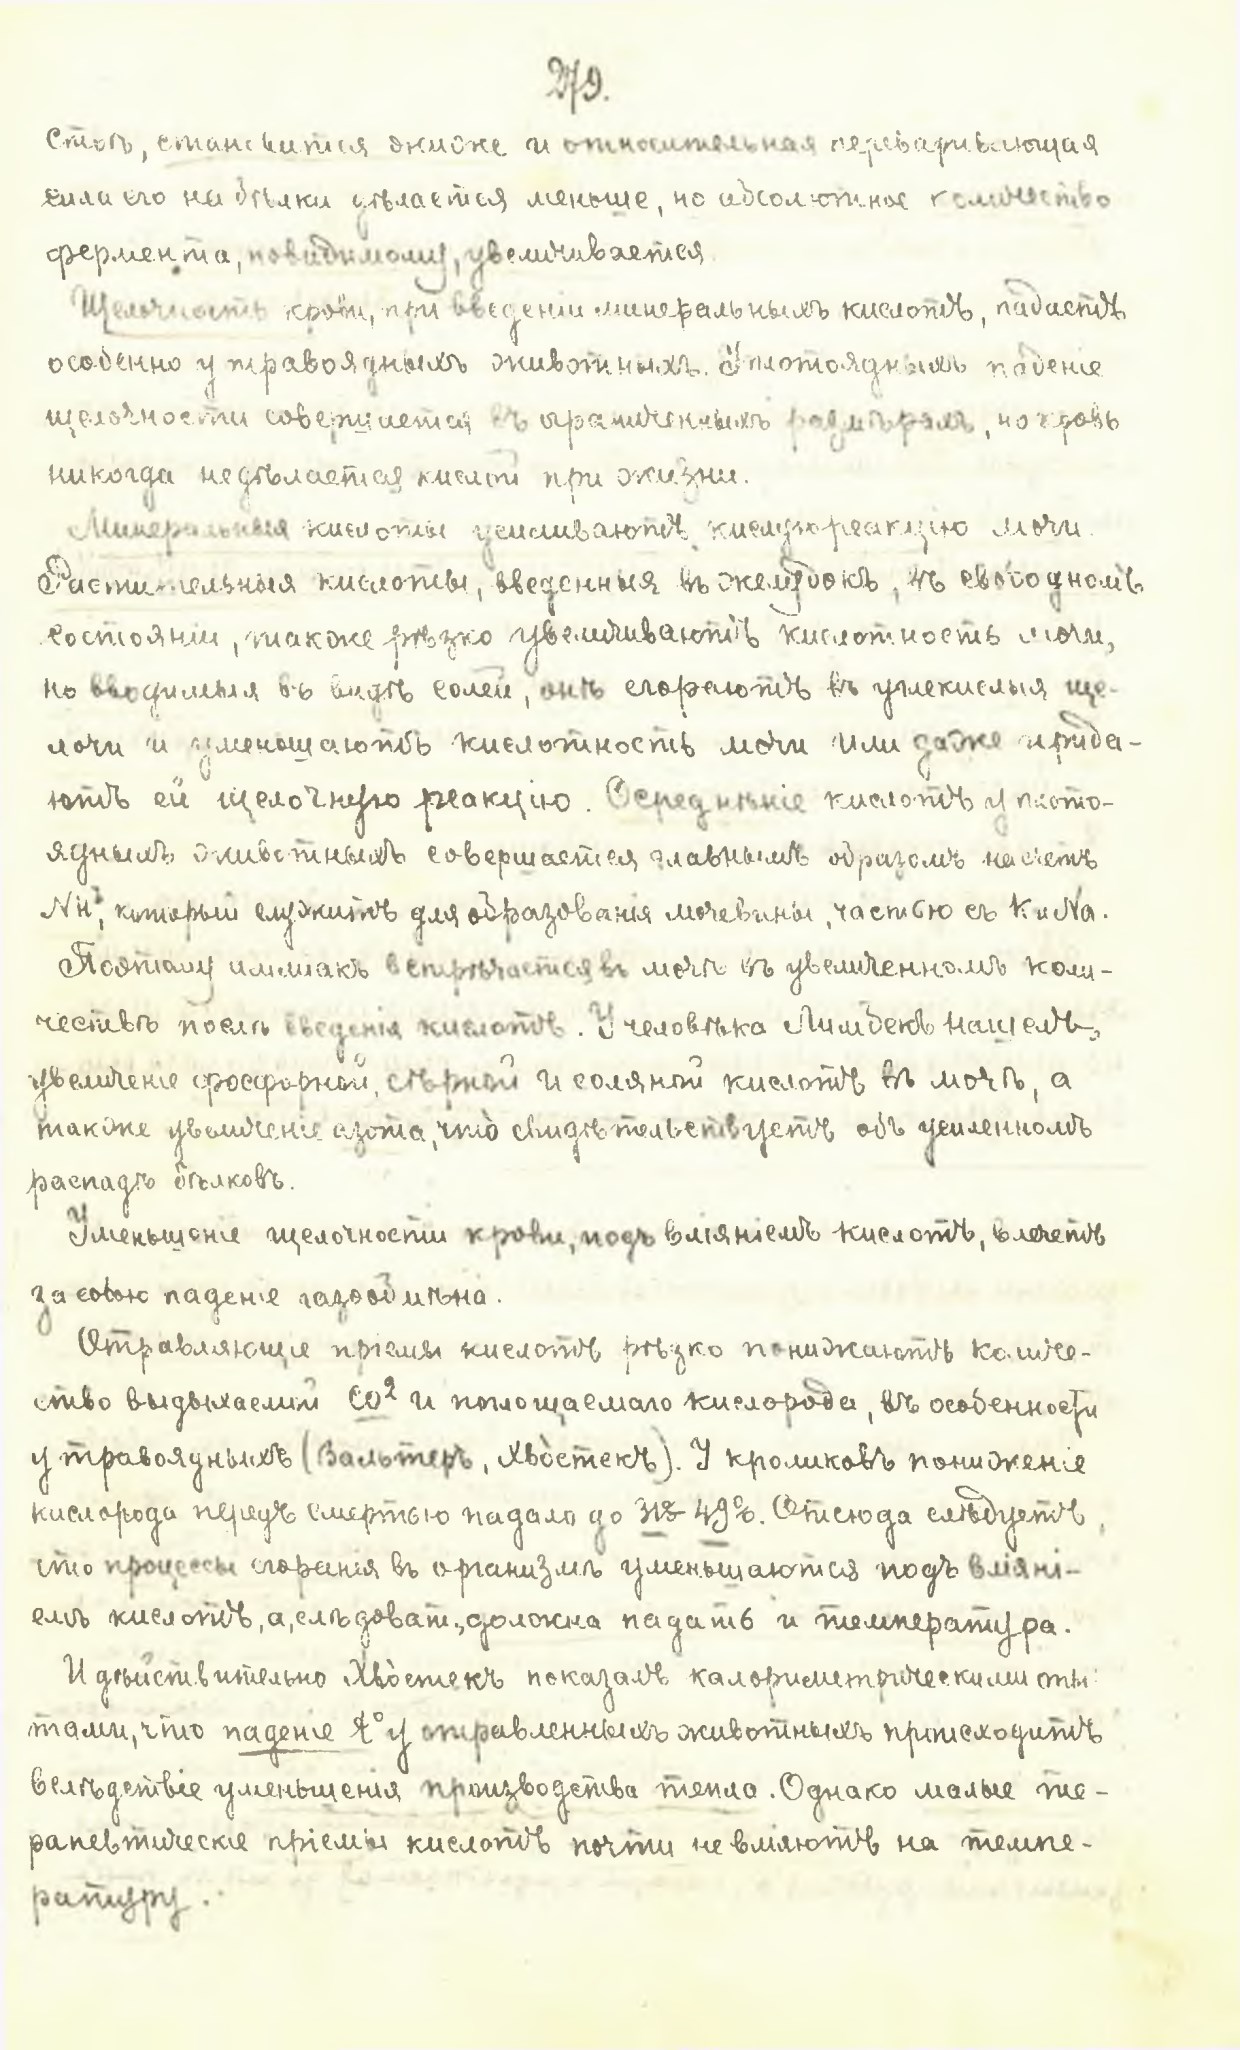 279.
стоъ, становится жиже и относительная переваривающая
сила его на бѣлки дѣлается меньше, но абсолютное количество
фермента, повидимому, увеличивается.
Щелочность крови, при введеніи минеральныхъ кислотъ, падаетъ
особенно у травоядныхъ животныхъ. У плотоядныхъ паденіе
щелочности совершается въ ограниченныхъ размѣрахъ, но кровь
никогда не дѣлается кислой при жизни.
Минеральныя кислоты усиливаютъ кислую реакцію мочи.
Растительныя кислоты, введенныя въ желудокъ, въ свободномъ
состояніи, также рѣзко увеличиваютъ кислотность мочи,
но вводимыя въ видѣ солей, онѣ сгораютъ въ углекислыя ще-
лочи и уменьшаютъ кислотность мочи или даже прида-
ютъ ей щелочную реакцію. Осредненіе кислотъ у плото-
ядныхъ животныхъ совершается главнымъ образомъ насчетъ
NH³, который служитъ для образованія мочевины, частью съ K и Na.
Поэтому амміакъ встрѣчается въ мочѣ въ увеличенномъ коли-
чествѣ послѣ введенія кислотъ. У человѣка Лимбекъ нашелъ
увеличеніе фосфорной, сѣрной и соляной кислотъ въ мочѣ, а
также увеличеніе азота, что свидѣтельствуетъ объ усиленномъ
распадѣ бѣлковъ.
Уменьшеніе щелочности крови, подъ вліяніемъ кислотъ, влечетъ
за собою паденіе газообмѣна.
Отравляющіе пріемы кислотъ рѣзко понижаютъ количе-
ство выдыхаемой CO² и поглощаемаго кислорода, въ особенности
у травоядныхъ (Вальтеръ, Хвостекъ). У кроликовъ пониженіе
кислорода передъ смертью падало до 49%. Отсюда слѣдуетъ,
что процессы сгоранія въ организмѣ уменьшаются подъ вліяні-
емъ кислотъ, а, слѣдоват., должна падать и температура.
И дѣйствительно Хвостекъ показалъ калориметрическими опы-
тами, что паденіе t° у отравленныхъ животныхъ происходитъ
вслѣдствіе уменьшенія производства тепла. Однако малые те-
рапевтическіе пріемы кислотъ почти не вліяютъ на темпе-
ратуру.